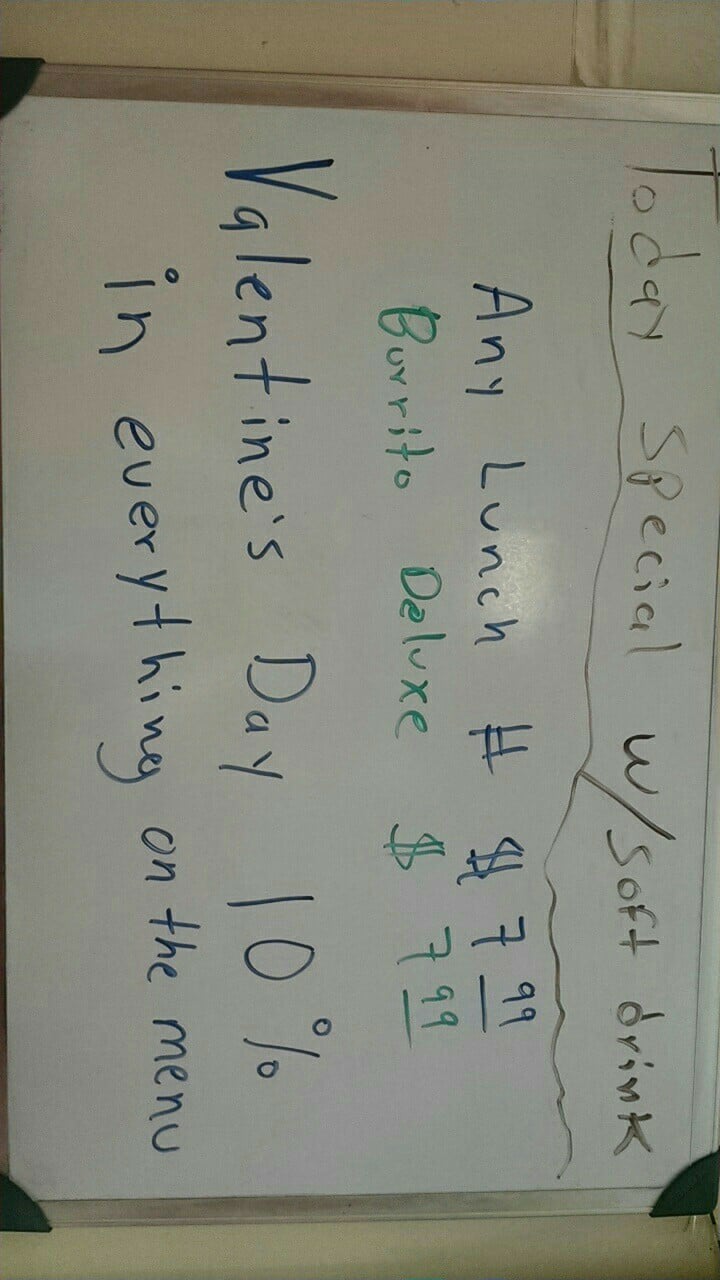 Today Special w/soft drink
Any Lunch # $ 7 99
Burrito Deluxe $ 7 99
Valentine's Day 10%
in everything on the menu